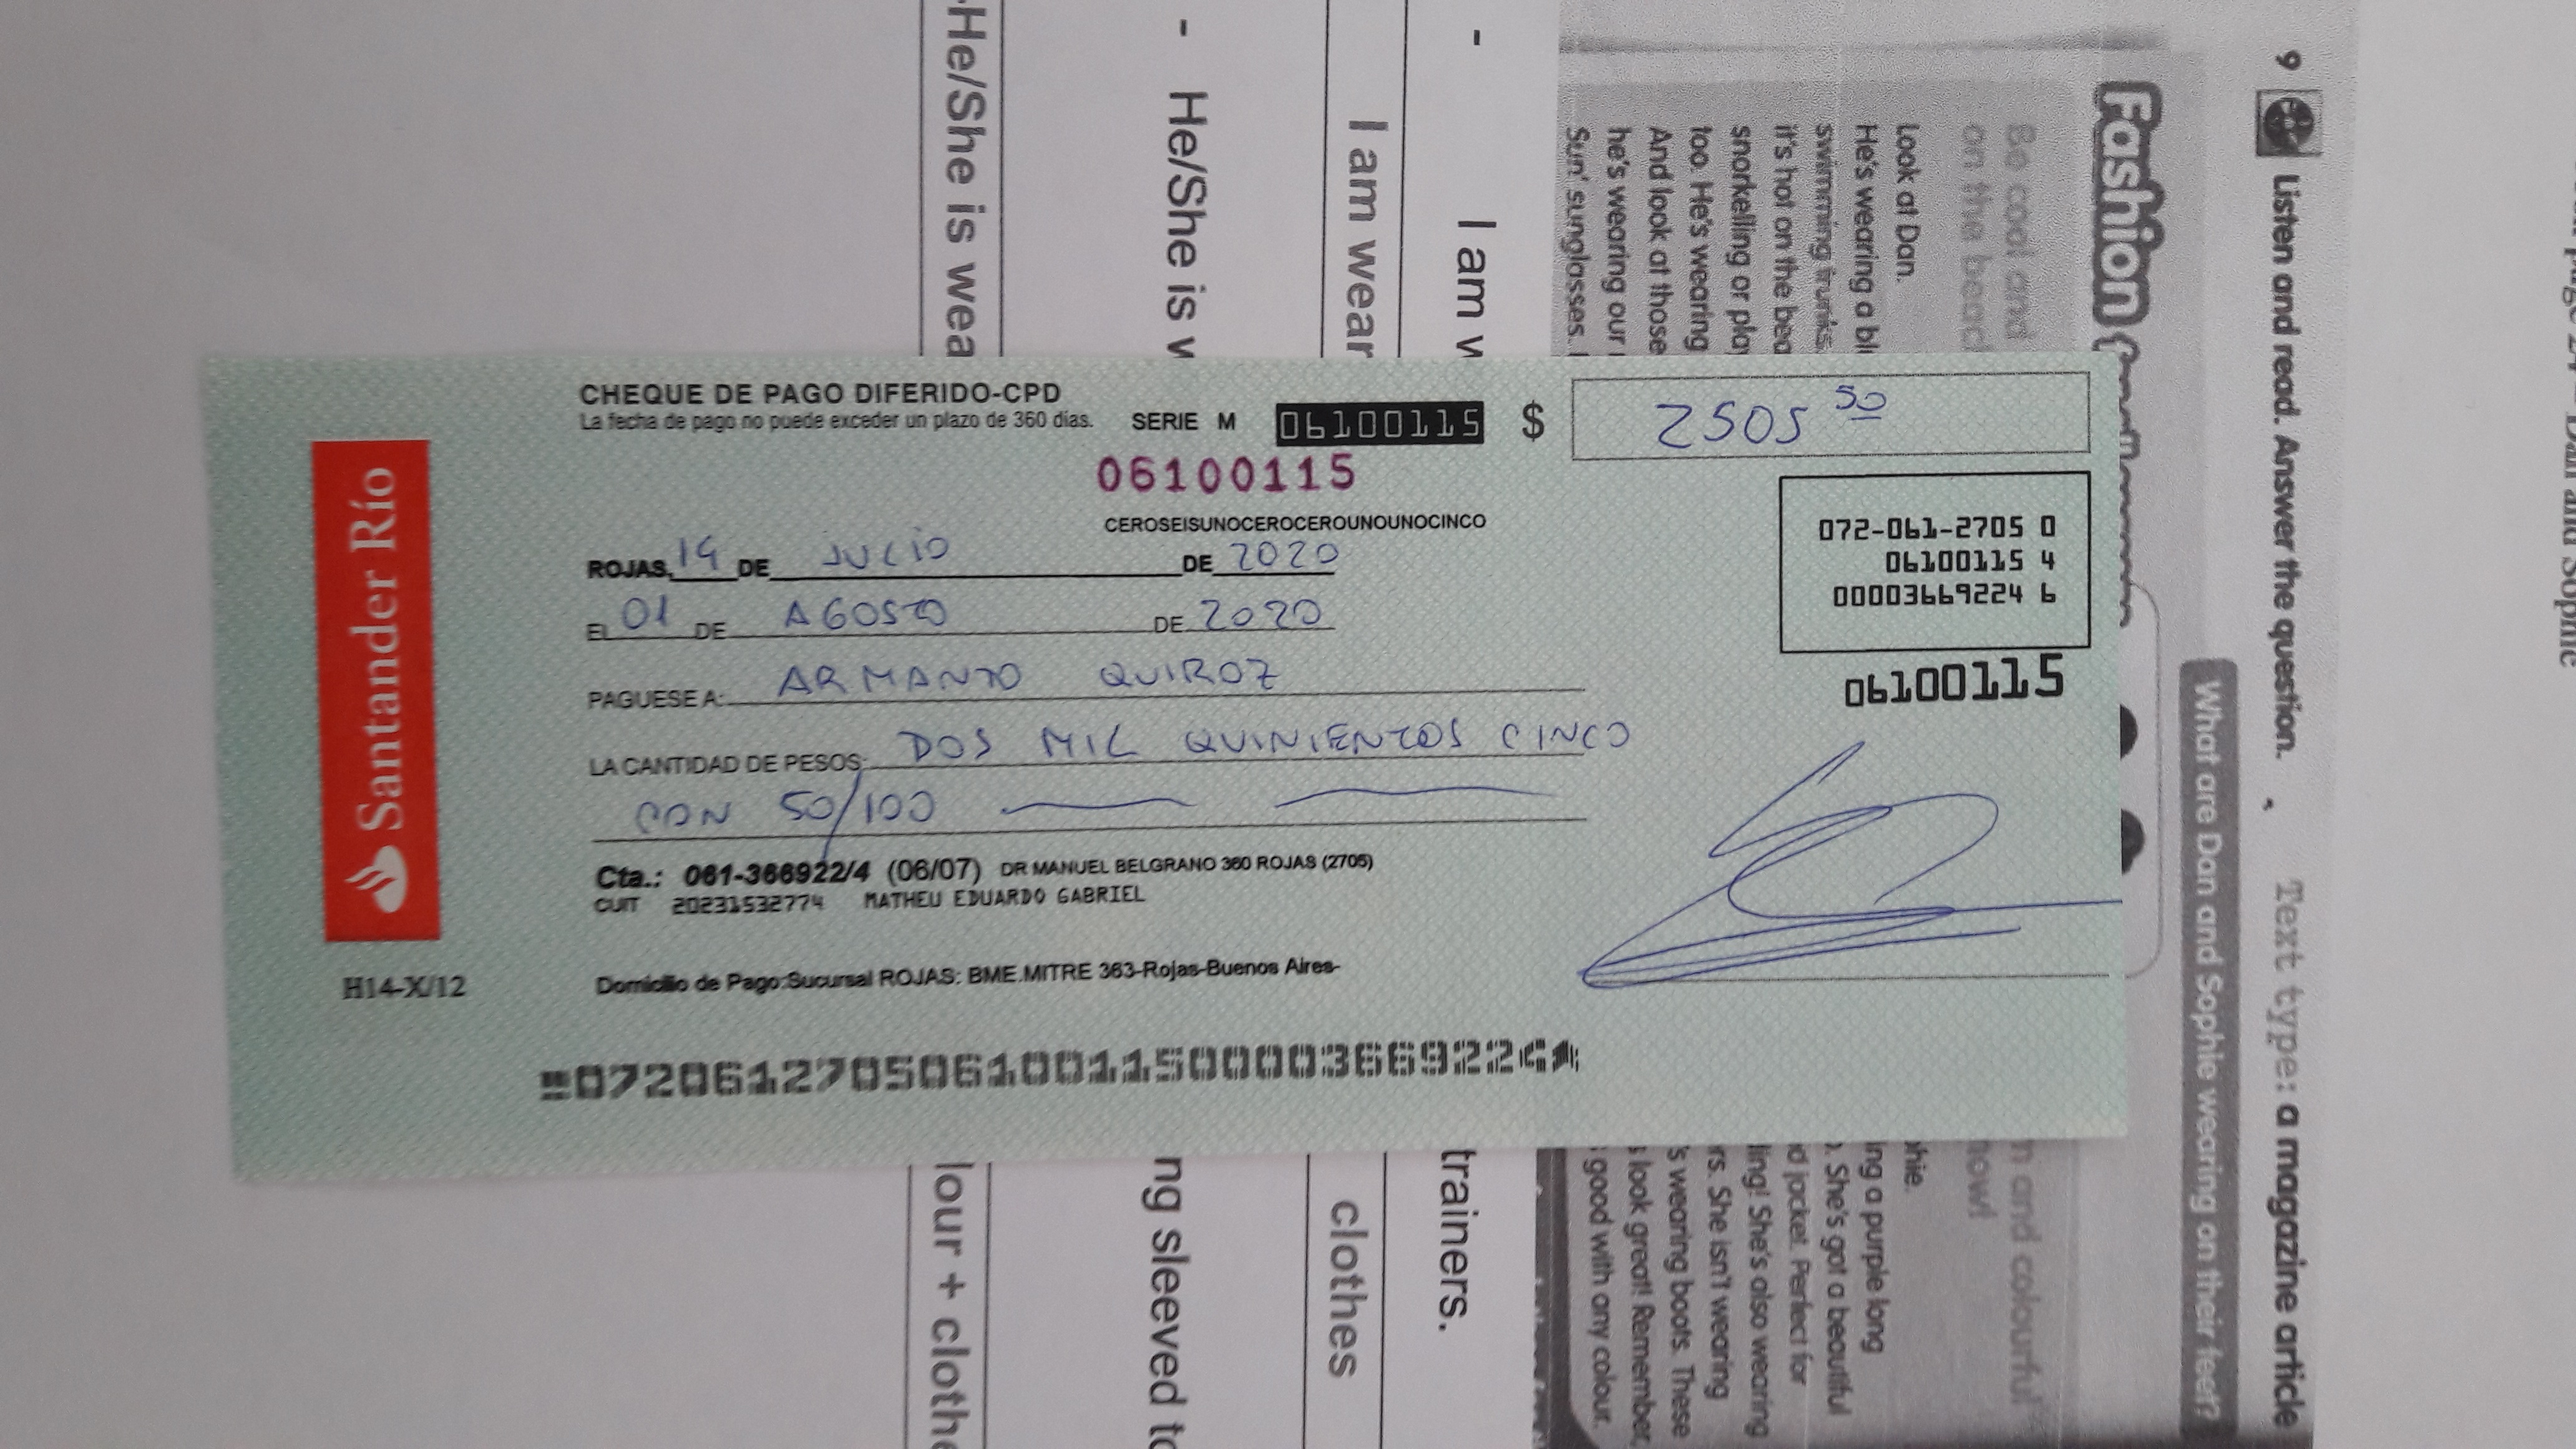 CHEQUE DE PAGO DIFERIDO-CPD
La fecha de pago no puede exceder un plazo de 360 días.
SERIE M 06100115 $ 2505 50
06100115
CEROSEISUNOCEROCEROUNOUNOCINCO
ROJAS, 14 DE JULIO DE 2020
El 01 DE AGOSTO DE 2020
PAGUESE A: ARMANDO QUIROZ
LA CANTIDAD DE PESOS: DOS MIL QUINIENTOS CINCO
CON 50/100
Cta.: 061-366922/4 (06/07) DR MANUEL BELGRANO 360 ROJAS (2705)
CUIT 20231532774 MATHEU EDUARDO GABRIEL
Domicilio de Pago:Sucursal ROJAS: BME.MITRE 363-Rojas-Buenos Aires-
072-061-2705 0
06100115 4
00003669224 6
06100115
Santander Río
H14-X/12
07206127050610011500003669224
9 Listen and read. Answer the question. Text type: a magazine article
What are Dan and Sophie wearing on their feet?
Fashion
Be cool and
on the beach
Look at Dan.
He's wearing a bl
swimming trunks.
it's hot on the bea
snorkelling or play
too. He's wearing
And look at those
he's wearing our
Sun' sunglasses.
n and colourful
now!
phie.
ing a purple long
. She's got a beautiful
d jacket. Perfect for
ling! She's also wearing
rs. She isn't wearing
's wearing boots. These
s look great! Remember,
good with any colour.
- I am w
trainers.
I am wear
clothes
- He/She is w
ng sleeved to
He/She is wea
lour + clothe
Dan and Sophie